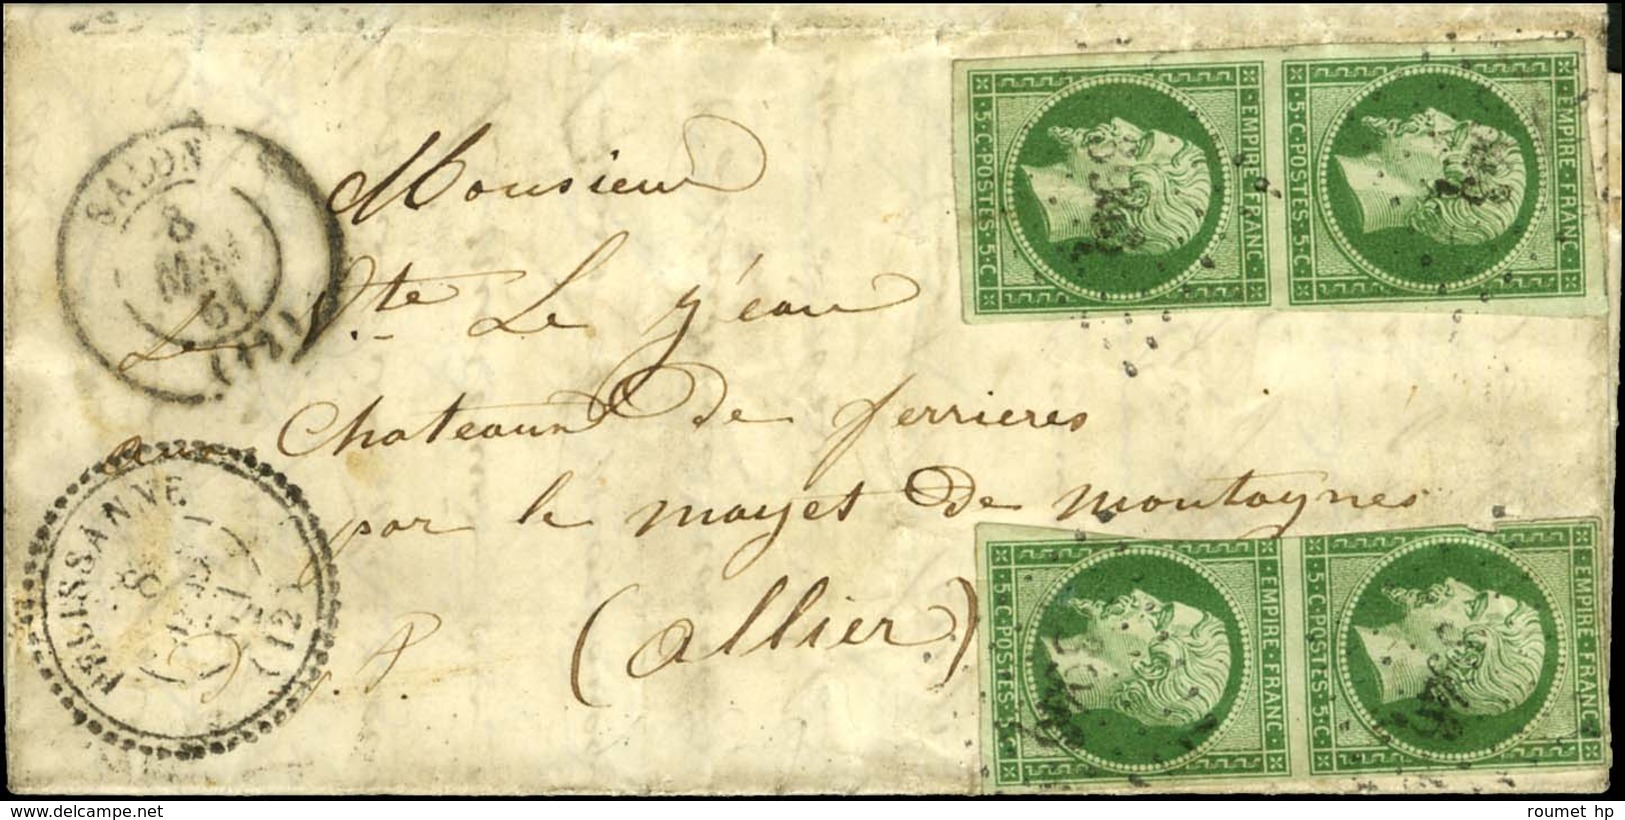 SALON
8
MAI
61
(12)
PELISSANNE
8
MAI
61
(12)
Monsieur
Le Vte Le Jeau
aux Chateaux de ferrieres
par le mayet de montagnes
(allier)
EMPIRE FRANC
5·C·POSTES·5·C
EMPIRE·FRANC
5·C·POSTES·5·C
EMPIRE·FRANC
5·C·POSTES·5·C
EMPIRE·FRANC
5·C·POSTES·5·C
www.delcampe.net
roumet hp